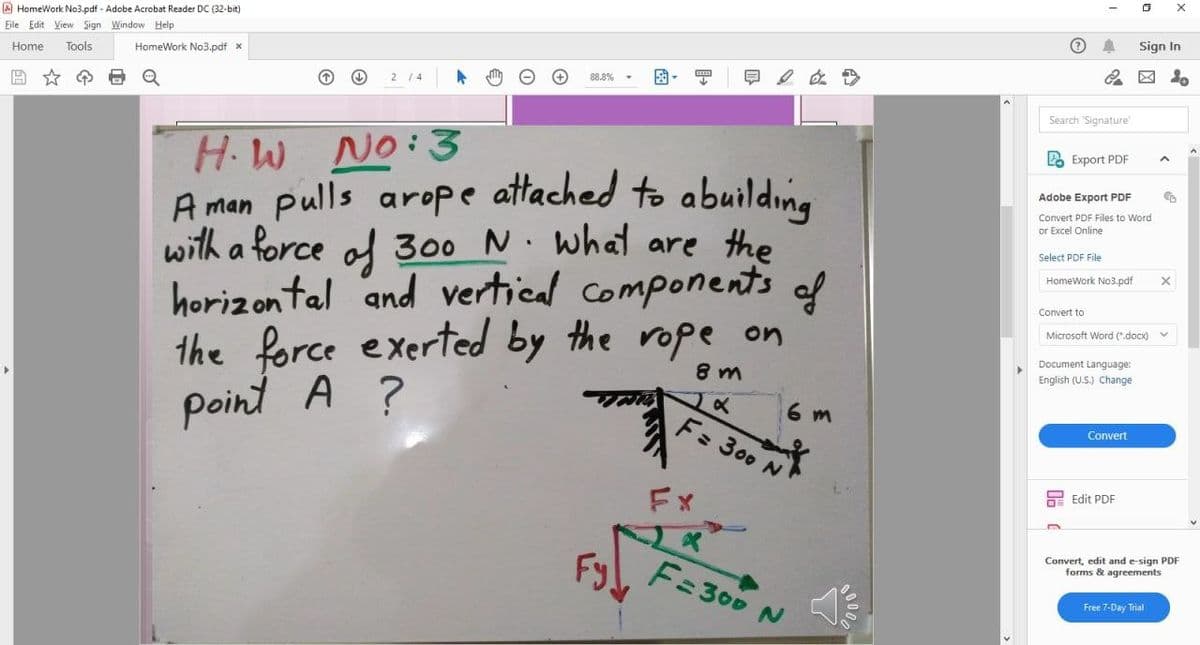 HomeWork No3.pdf - Adobe Acrobat Reader DC (32-bit)
File Edit View Sign Window Help
Home Tools HomeWork No3.pdf x Sign In
2 / 4 88.8%
H.W NO:3
A man pulls arope attached to abuilding
with a force of 300 N. What are the
horizontal and vertical components of
the force exerted by the rope on
point A ?
8 m
α
6 m
F=300 N
Fx
α
Fy
F=300 N
Search 'Signature'
Export PDF
Adobe Export PDF
Convert PDF Files to Word
or Excel Online
Select PDF File
HomeWork No3.pdf X
Convert to
Microsoft Word (*.docx)
Document Language:
English (U.S.) Change
Convert
Edit PDF
Convert, edit and e-sign PDF
forms & agreements
Free 7-Day Trial